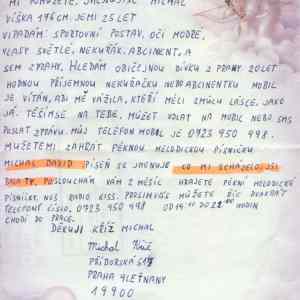 MI POMŮŽETE, JMENUJI SE MICHAL
VÍŠKA 176CM. JEMI 25 LET
VIPADÁM: SPORTOVNÍ POSTAV, OČI MODŘE,
VLASY SVĚTLÉ, NEKUŘÁK, ABCINENT, A
SEM Z PRAHY, HLEDÁM OBIČEJNOU DÍVKU Z PRAHY 20 LET
HODNOU PŘÍJEMNOU NEKUŘAČKU NEBO ABCINENTKU MOBIL
JE VÍTÁN, ABI MĚ VÁŽILA, KTEŘÍ MĚLI ZMŮLU LÁSCE, JAKO
JÁ. TĚŠÍM SE NA TEBE, MŮŽET VOLAT NA MOBIL NEBO SMS
POSLAT ZPRÁVU. MŮJ TELEFON MOBIL JE 0723 950 498.
MŮŽETE MI ZAHRÁT PĚKNOU MELODICKOU PÍSNIČKU
MICHAL DAVID PÍSEŇ SE JMENUJE CO MI SCHÁZELO JSI
TY. POSLOUCHÁM VÁM 2 MĚSÍC HRAJETE PĚKNÍ MELODICKÉ
PÍSNIČKI. VÁS RÁDIO KISS. PROSÍM VÁS MŮŽETE DVAKRÁT
TELEFONÍ ČÍSLO. 0723 950 498 OD 19.00 DO 22.00 HODIN
CHODÍ DO PRÁCE.
DĚKUJI KŘÍŽ MICHAL
Michal Kříž
PŘÍBORSKÁ 519
PRAHA 9 LETŇANY
19900